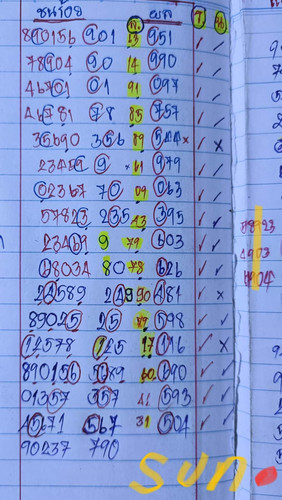 ชนร้อย ล. บท T H
890156 901 23 951 ✓ ✓
78904 90 14 990 ✓ ✓
46701 01 91 097 ✓ ✓
46781 78 85 757 ✓ ✓
35690 356 89 544× ✓ ×
23459 9 61 979 ✓ ✓
02367 70 09 063 ✓ ✓
57823 235 43 395 ✓ ✓
23469 9 79 603 ✓ ✓
68034 80 78 626 ✓ ✓
24583 249 90 481 ✓ ×
89025 25 49 598 ✓ ✓
12578 125 17 116 ✓ ×
890156 60 690 ✓ ✓
01357 357 593 ✓ ✓
45671 567 31 504 ✓ ✓
90237 790
4903
8904
sun.